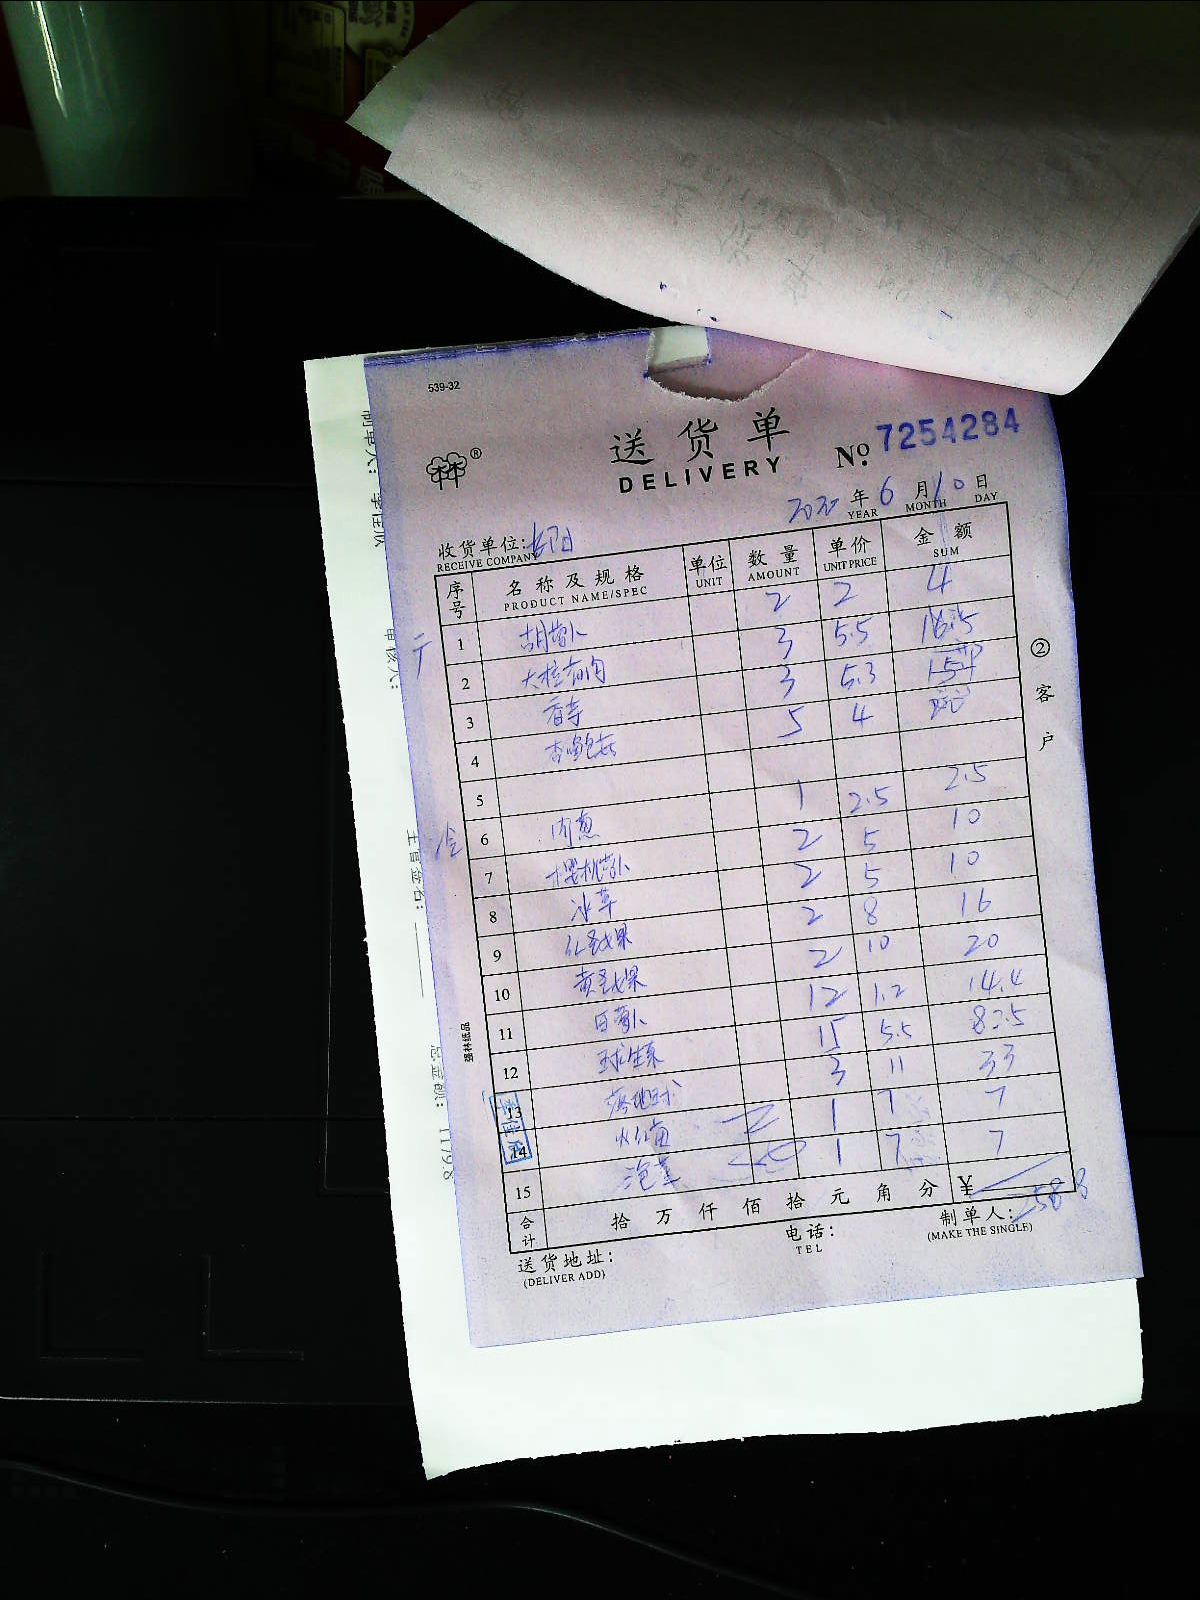 539-32
送货单
DELIVERY
No. 7254284
®
2020 年 6 月 10 日
YEAR MONTH DAY
收货单位:
RECEIVE COMPANY
序号 名称及规格 单位 数量 单价 金额
PRODUCT NAME/SPEC UNIT AMOUNT UNIT PRICE SUM
1 胡萝卜 2 2 4
2 3 5.5 16.5
3 香芋 3 5.3 15.9
4 杏鲍菇 5 4
5
6 肉葱 1 2.5 2.5
7 樱桃萝卜 2 5 10
8 冰草 2 5 10
9 红圣女果 2 8 16
10 黄圣女果 2 10 20
11 白萝卜 12 1.2 14.4
12 球生菜 15 5.5 82.5
13 3 11 33
14 1 7 7
15 泡菜 1 7 7
合计 拾 万 仟 佰 拾 元 角 分 ¥ 258.8
送货地址:
(DELIVER ADD)
电话:
TEL
制单人:
(MAKE THE SINGLE)
② 客户
强林纸品
制单人: 李佳欣
审核人:
主管签名:
总金额: 1179.8